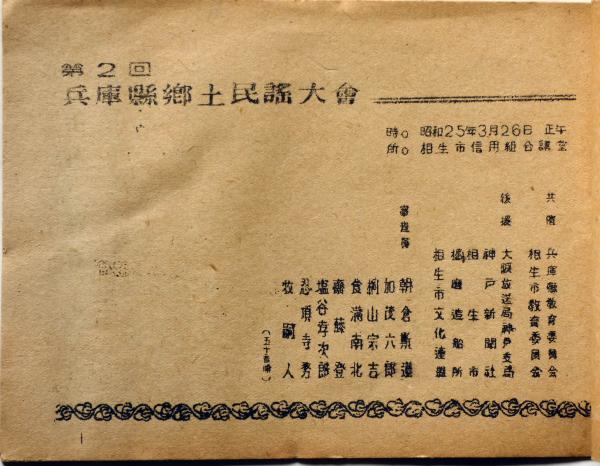 第2回
兵庫縣郷土民謡大會
時。 昭和25年3月26日 正午
所。 相生市信用組合講堂
共催 兵庫縣教育委員会
相生市教育委員会
後援 大阪放送局神戸支局
神戸新聞社
相生市
播磨造船所
相生市文化連盟
審査員 朝倉斯道
加茂六郎
桝山宗吉
食満南北
齋藤登
塩谷存次郎
忍頂寺秀
牧嗣人
(五十音順)
1